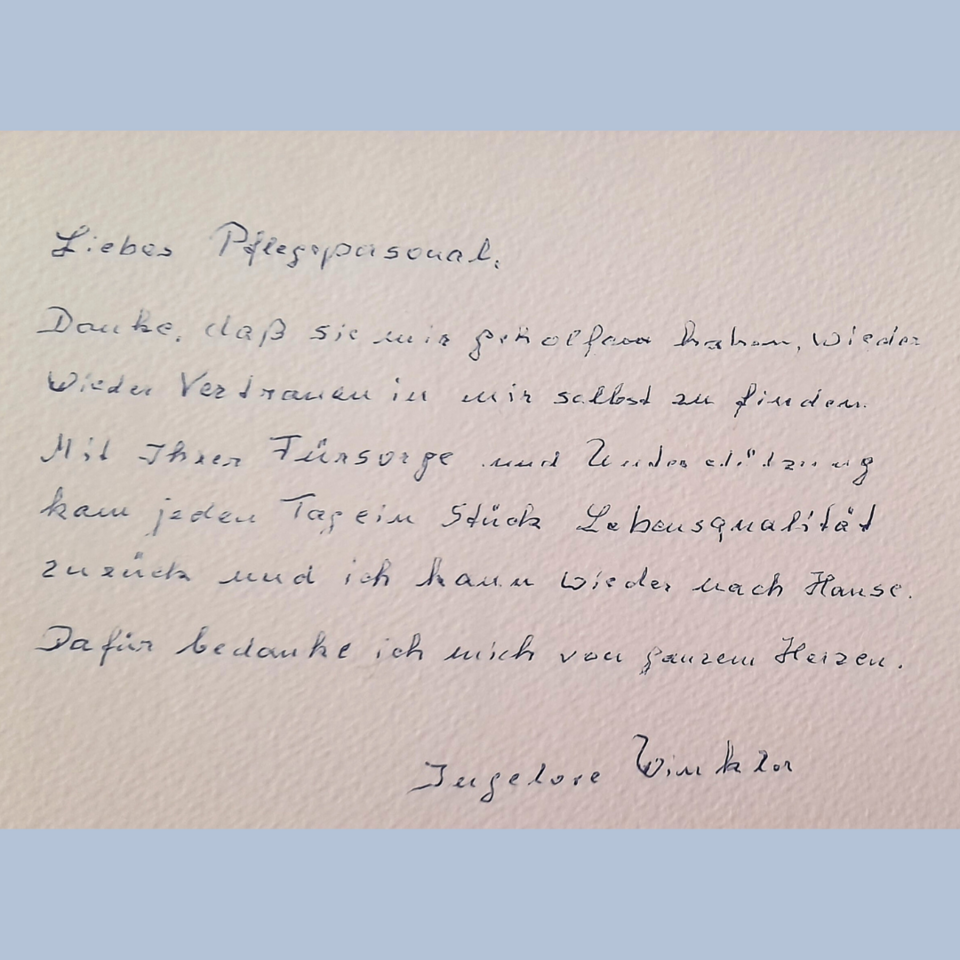 Liebes Pflegepersonal,
Danke, daß sie mir geholfen haben, wieder
wieder Vertrauen in mir selbst zu finden.
Mit Ihrer Fürsorge und Unterstützung
kam jeden Tag ein Stück Lebensqualität
zurück und ich kann wieder nach Hause.
Dafür bedanke ich mich von ganzem Herzen.
Ingelore Winkler